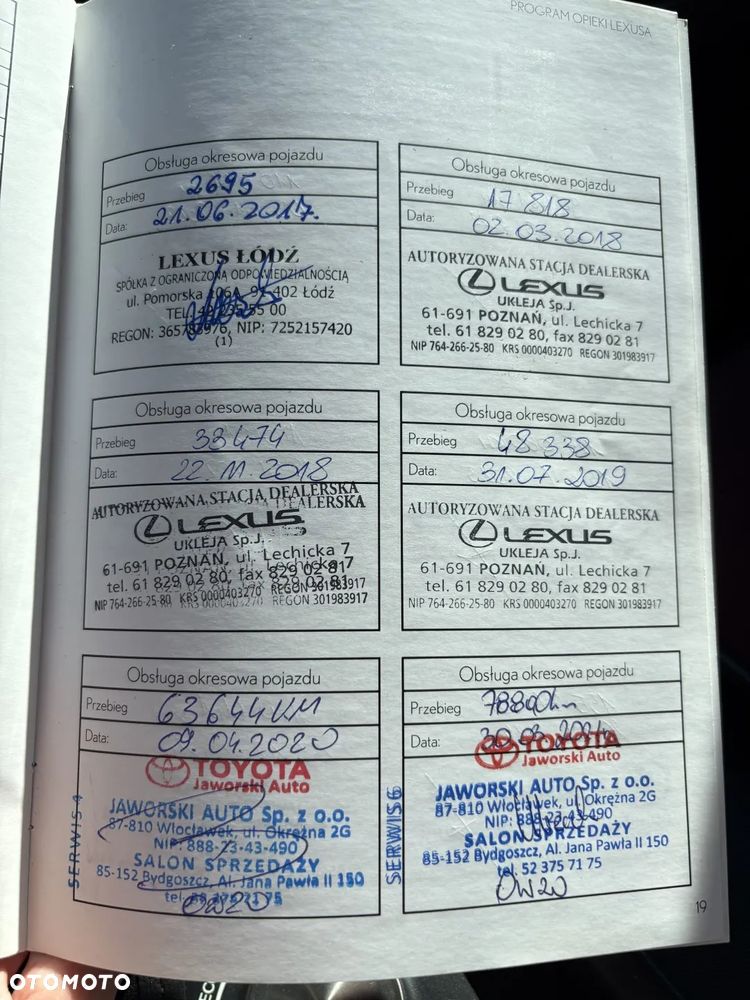 PROGRAM OPIEKI LEXUSA
Obsługa okresowa pojazdu
Przebieg 2695
Data: 21.06.2017.
LEXUS ŁÓDŹ
SPÓŁKA Z OGRANICZONĄ ODPOWIEDZIALNOŚCIĄ
ul. Pomorska 402 Łódź
TEL. 55 00
REGON: 365783976, NIP: 7252157420
(1)
Obsługa okresowa pojazdu
Przebieg 17 818
Data: 02.03.2018
AUTORYZOWANA STACJA DEALERSKA
LEXUS
UKLEJA Sp.J.
61-691 POZNAŃ, ul. Lechicka 7
tel. 61 829 02 80, fax 829 02 81
NIP 764-266-25-80 KRS 0000403270 REGON 301983917
Obsługa okresowa pojazdu
Przebieg 33474
Data: 22.11.2018
AUTORYZOWANA STACJA DEALERSKA
LEXUS
UKLEJA Sp.J.
61-691 POZNAŃ, ul. Lechicka 7
tel. 61 829 02 80, fax 829 02 81
NIP 764-266-25-80 KRS 0000403270 REGON 301983917
Obsługa okresowa pojazdu
Przebieg 48 338
Data: 31.07.2019
AUTORYZOWANA STACJA DEALERSKA
LEXUS
UKLEJA Sp.J.
61-691 POZNAŃ, ul. Lechicka 7
tel. 61 829 02 80, fax 829 02 81
NIP 764-266-25-80 KRS 0000403270 REGON 301983917
Obsługa okresowa pojazdu
Przebieg 63644KM
Data: 09.04.2020
TOYOTA
Jaworski Auto
SERWIS
JAWORSKI AUTO Sp. z o.o.
87-810 Włocławek, ul. Okrężna 2G
NIP: 888-23-43-490
SALON SPRZEDAŻY
85-152 Bydgoszcz, Al. Jana Pawła II 150
tel. 75
0W20
Obsługa okresowa pojazdu
Przebieg
Data: 30.03.
TOYOTA
Jaworski Auto
SERWIS 6
JAWORSKI AUTO Sp. z o.o.
87-810 Włocławek, ul. Okrężna 2G
NIP: 888-23-43-490
SALON SPRZEDAŻY
85-152 Bydgoszcz, Al. Jana Pawła II 150
tel. 52 375 71 75
0W20
19
OTOMOTO